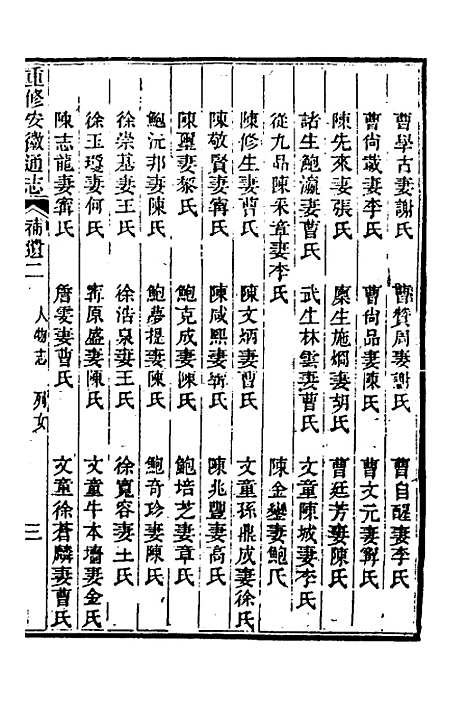 曹學古妻謝氏　曹贊周妻謝氏　曹自醒妻李氏
曹尙箴妻李氏　曹尙品妻陳氏　曹文元妻甯氏
陳先來妻張氏　廩生施燗妻胡氏　曹廷芳妻陳氏
諸生鮑瀛妻曹氏　武生林雲妻曹氏　文童陳城妻李氏
從九品陳采章妻李氏　陳金鑾妻鮑氏
陳修生妻曹氏　陳文炳妻曹氏　文童孫鼎成妻徐氏
陳敬賢妻甯氏　陳咸熙妻甯氏　陳兆豐妻高氏
陳翼妻黎氏　鮑克成妻陳氏　鮑培芝妻章氏
鮑沅邦妻陳氏　鮑夢提妻陳氏　鮑奇珍妻陳氏
徐崇基妻王氏　徐浩泉妻王氏　徐寬容妻王氏
徐玉瓊妻何氏　甯原盛妻陳氏　文童牛本墻妻金氏
陳志龍妻甯氏　詹雯妻曹氏　文童徐蒼麟妻曹氏
重修安徽通志　補遺二　人物志　列女　三